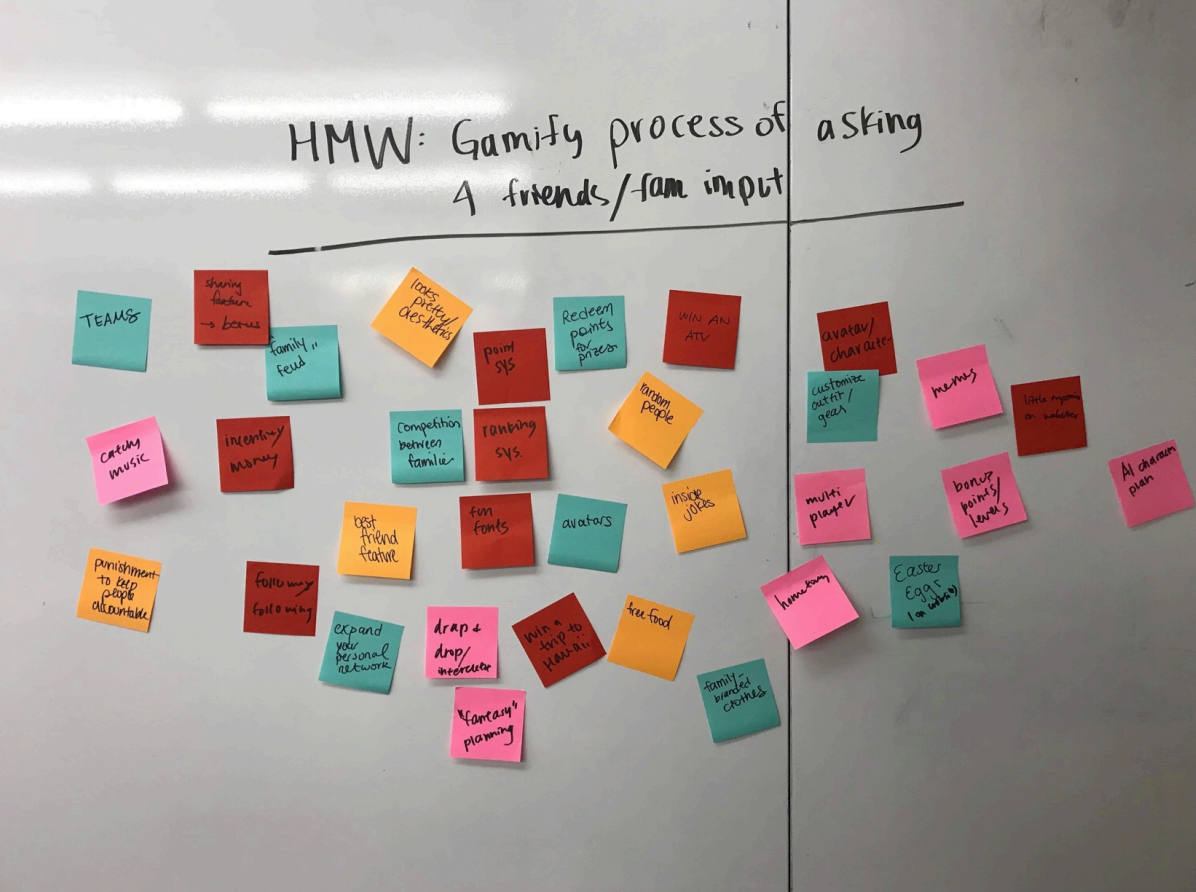 HMW: Gamify process of asking
4 friends/fam input
TEAMS
sharing
feature
→ bonus
family
feud
looks
pretty/
aesthetics
point
sys
Redeem
points
for
prizes
WIN AN
ATV
avatar/
character
customize
outfit/
gear
memes
little
on
catchy
music
money
competition
between
families
ranking
sys.
random
people
multi
player
bonus
points/
levels
AI
plan
best
friend
feature
fun
fonts
avatars
inside
jokes
punishment
to keep
people
accountable
following
expand
your
personal
network
drag &
drop/
win a
trip to
Hawaii
free food
hometown
Easter
Eggs
family-
branded
clothes
"fantasy"
planning